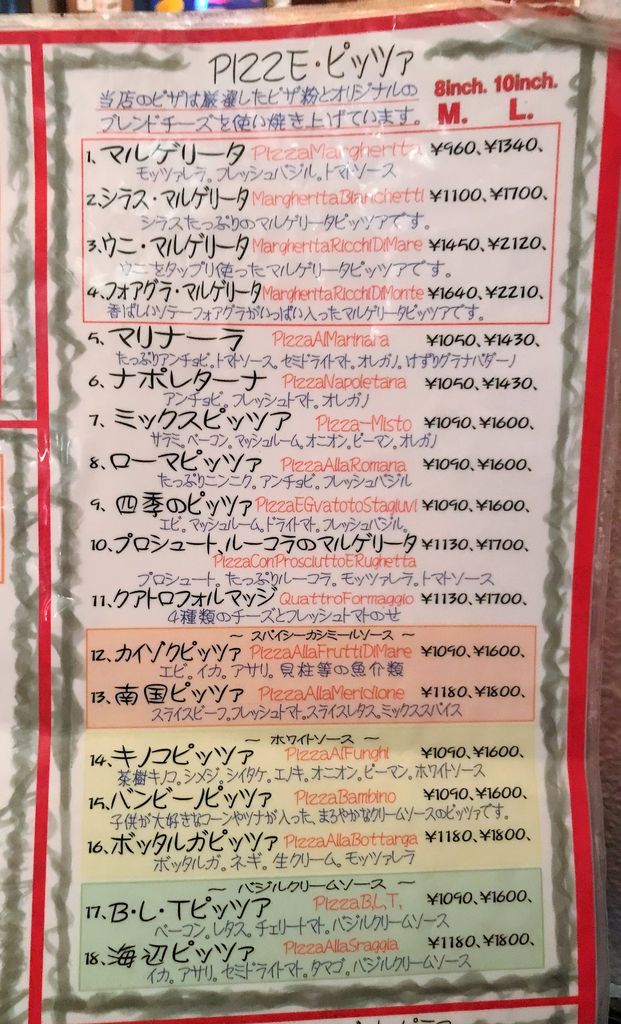 PIZZE・ピッツァ
当店のピザは厳選したピザ粉とオリジナルの
ブレンドチーズを使い焼き上げています。
8inch. 10inch.
M. L.
1、マルゲリータ PizzaMargherita ¥960、¥1340、
モッツァレラ。フレッシュバジル。トマトソース
2、シラス・マルゲリータ MargheritaBianchetti ¥1100、¥1700、
シラスたっぷりのマルゲリータピッツァです。
3、ウニ・マルゲリータ MargheritaRicchiDiMare ¥1450、¥2120、
ウニをタップリ使ったマルゲリータピッツァです。
4、フォアグラ・マルゲリータ MargheritaRicchiDiMonte ¥1640、¥2210、
香ばしいソテーフォアグラがいっぱい入ったマルゲリータピッツァです。
5、マリナーラ PizzaAlMarinara ¥1050、¥1430、
たっぷりアンチョビ。トマトソース。セミドライトマト。オレガノ。けずりグラナパダーノ
6、ナポレターナ PizzaNapoletana ¥1050、¥1430、
アンチョビ。フレッシュトマト。オレガノ
7、ミックスピッツァ Pizza-Misto ¥1090、¥1600、
サラミ。ベーコン。マッシュルーム。オニオン。ピーマン。オレガノ
8、ローマピッツァ PizzaAllaRomana ¥1090、¥1600、
たっぷりニンニク。アンチョビ。フレッシュバジル
9、四季のピッツァ PizzaEGvatotoStagiuvi ¥1090、¥1600、
エビ。マッシュルーム。ドライトマト。フレッシュバジル。
10、プロシュート、ルーコラのマルゲリータ ¥1130、¥1700、
PizzaConProsciuttoERughetta
プロシュート。たっぷりルーコラ。モッツァレラ。トマトソース
11、クアトロフォルマッジ QuattroFormaggio ¥1130、¥1700、
4種類のチーズとフレッシュトマトのせ
～ スパイシーカシミールソース ～
12、カイゾクピッツァ PizzaAllaFruttiDiMare ¥1090、¥1600、
エビ。イカ。アサリ。貝柱等の魚介類
13、南国ピッツァ PizzaAllaMericlione ¥1180、¥1800、
スライスビーフ。フレッシュトマト。スライスレタス。ミックススパイス
～ ホワイトソース ～
14、キノコピッツァ PizzaAlFunghi ¥1090、¥1600、
茶樹キノコ。シメジ。シイタケ。エノキ。オニオン。ピーマン。ホワイトソース
15、バンビーノピッツァ PizzaBambino ¥1090、¥1600、
子供が大好きなコーンやツナが入った、まろやかなクリームソースのピッツァです。
16、ボッタルガピッツァ PizzaAllaBottarga ¥1180、¥1800、
ボッタルガ。ネギ。生クリーム。モッツァレラ
～ バジルクリームソース ～
17、B・L・Tピッツァ PizzaB,L,T, ¥1090、¥1600、
ベーコン。レタス。チェリートマト。バジルクリームソース
18、海辺ピッツァ PizzaAllaSraggia ¥1180、¥1800、
イカ。アサリ。セミドライトマト。タマゴ。バジルクリームソース